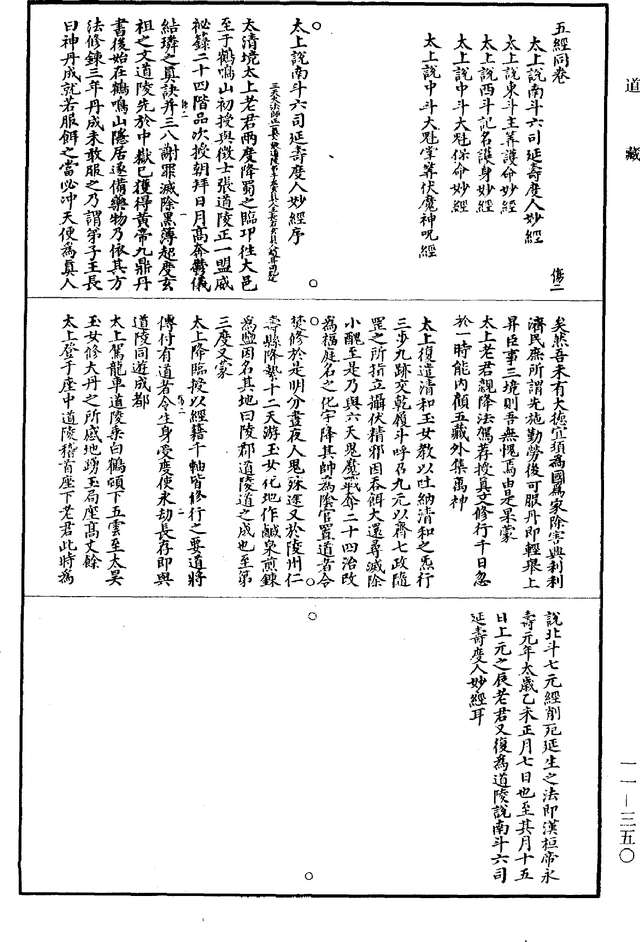 道藏
五經同卷
傷二
太上說南斗六司延壽度人妙經
太上說東斗主筭護命妙經
太上說西斗記名護身妙經
太上說中斗大魁保命妙經
太上說中斗大魁掌筭伏魔神呪經
太上說南斗六司延壽度人妙經序
太清境太上老君兩度降蜀之臨邛往大邑
至于鶴鳴山初授與徵士張道陵正一盟威
祕籙二十四階品次授朝拜日月高奔鬱儀
結璘之真訣并三八謝罪滅除黑簿超度玄
祖之文道陵先於中嶽已獲得黃帝九鼎丹
書後始在鶴鳴山隱居遂備藥物乃依其方
法修鍊三年丹成未敢服之乃謂弟子王長
曰神丹成就若服餌之當必冲天便為真人
矣然吾未有大德宜須為國為家除害興利利
濟民庶所謂先施勤勞後可服丹即輕舉上
昇臣事三境則吾無愧焉由是果蒙
太上老君親降法駕荐授真文修行千日忽
於一時能內顧五藏外集萬神
太上復遣清和玉女教以吐納清和之炁行
三步九跡交乾履斗呼召九元以齊七政隨
罡之所指立攝伏精邪因吞餌大還尋滅除
小醜至是乃與六天鬼魔戰奪二十四治改
為福庭名之化宇降其帥為陰官置道者令
焚修於是明分晝夜人鬼殊途又於陵州仁
壽縣降縶十二天游玉女化地作鹹泉煎鍊
為鹽因名其地曰陵郡道陵道之成也至第
三度又蒙
太上降臨授以經籍千軸皆修行之要道將
傳付有道者令生身受度使永劫長存即與
道陵同遊成都
太上駕龍車道陵乘白鶴頃下五雲至太昊
玉女修大丹之所感地踴玉局座高丈餘
太上登于座中道陵稽首座下老君此時為
說北斗七元經削死延生之法即漢桓帝永
壽元年太歲乙未正月七日也至其月十五
日上元之辰老君又復為道陵說南斗六司
延壽度人妙經耳
一一—三五〇